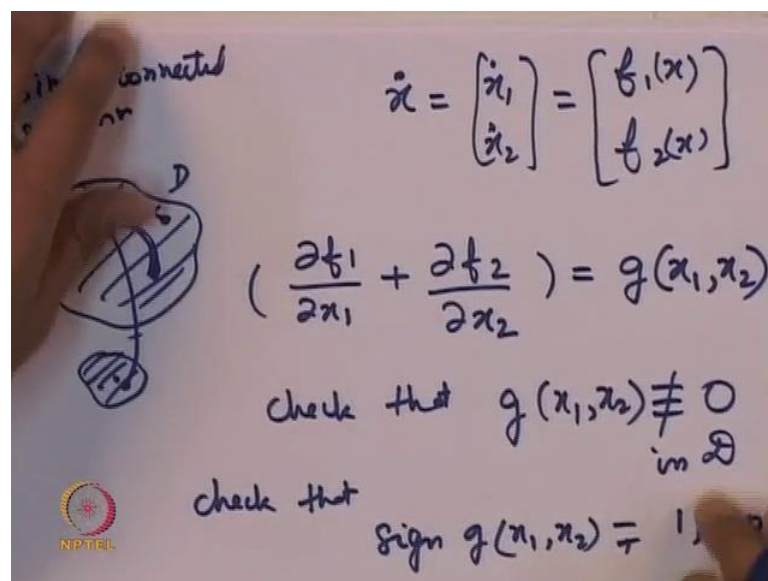 connected
ẋ = [ẋ₁ ẋ₂] = [f₁(x) f₂(x)]
D
( ∂f₁/∂x₁ + ∂f₂/∂x₂ ) = g(x₁,x₂)
check that g(x₁,x₂) ≢ 0
in D
check that
sign g(x₁,x₂) = 1,
NPTEL